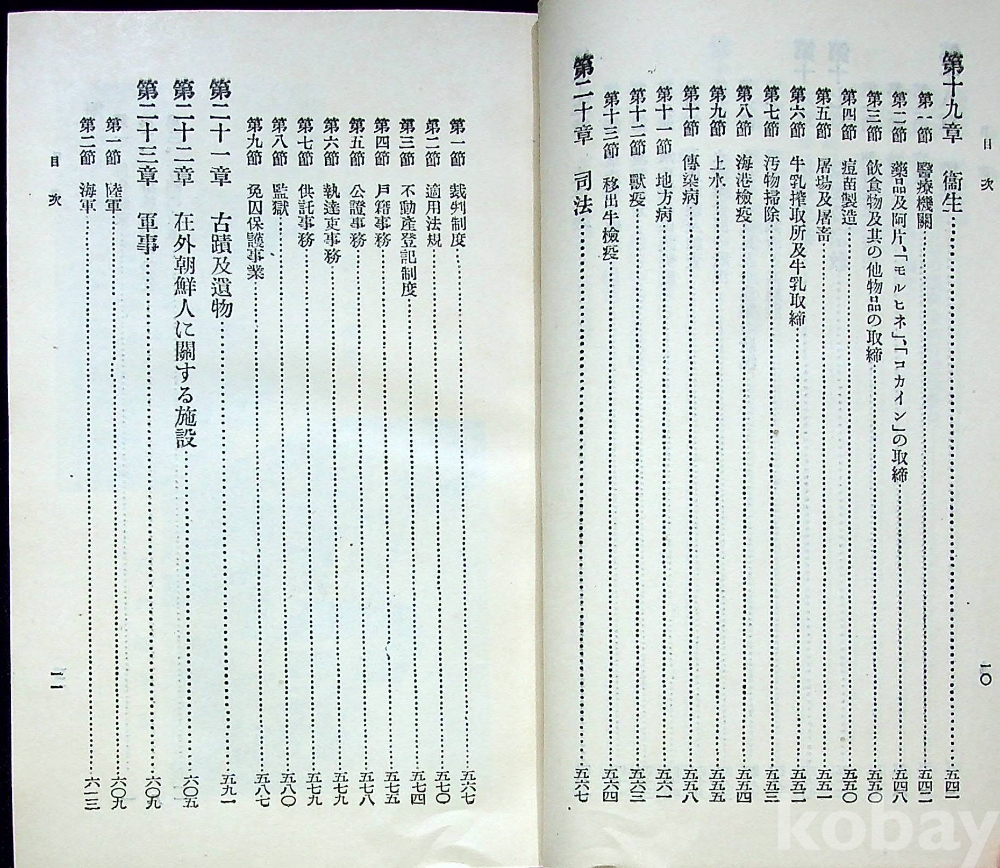 目次
一〇
第十九章 衞生……五四一
第一節 醫療機關……五四二
第二節 藥品及阿片、「モルヒネ」、「コカイン」の取締……五四八
第三節 飲食物及其の他物品の取締……五五〇
第四節 痘苗製造……五五〇
第五節 屠場及屠畜……五五一
第六節 牛乳搾取所及牛乳取締……五五二
第七節 汚物掃除……五五三
第八節 海港檢疫……五五四
第九節 上水……五五五
第十節 傳染病……五五八
第十一節 地方病……五六一
第十二節 獸疫……五六三
第十三節 移出牛檢疫……五六四
第二十章 司法……五六七
第一節 裁判制度……五六七
第二節 適用法規……五七〇
第三節 不動産登記制度……五七四
第四節 戶籍事務……五七五
第五節 公證事務……五七八
第六節 執達吏事務……五七九
第七節 供託事務……五七九
第八節 監獄……五八〇
第九節 免囚保護事業……五八七
第二十一章 古蹟及遺物……五九一
第二十二章 在外朝鮮人に關する施設……六〇五
第二十三章 軍事……六〇九
第一節 陸軍……六〇九
第二節 海軍……六一三
目次
一一
kobay